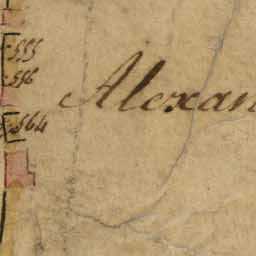 555
556
Alexan
564